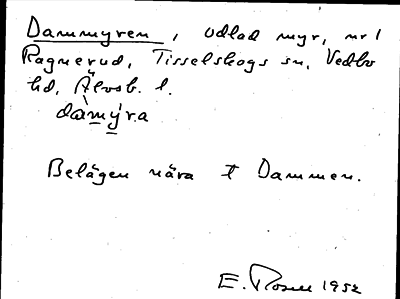 Dammyren, odlad myr, nr 1
Ragnerud, Tisselskogs sn, Vedbo
hd, Älvsb. l.
dàmýra
Belägen nära t Dammen.
E. Rosell 1952